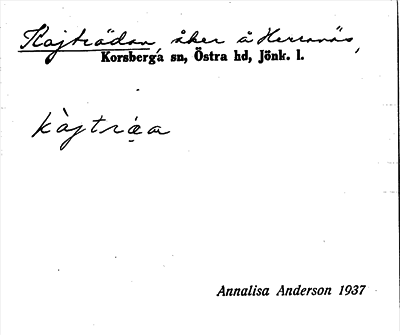 Kojträdan, åker å Herranäs,
Korsberga sn, Östra hd, Jönk. l.
kòjtrá̤a
Annalisa Anderson 1937